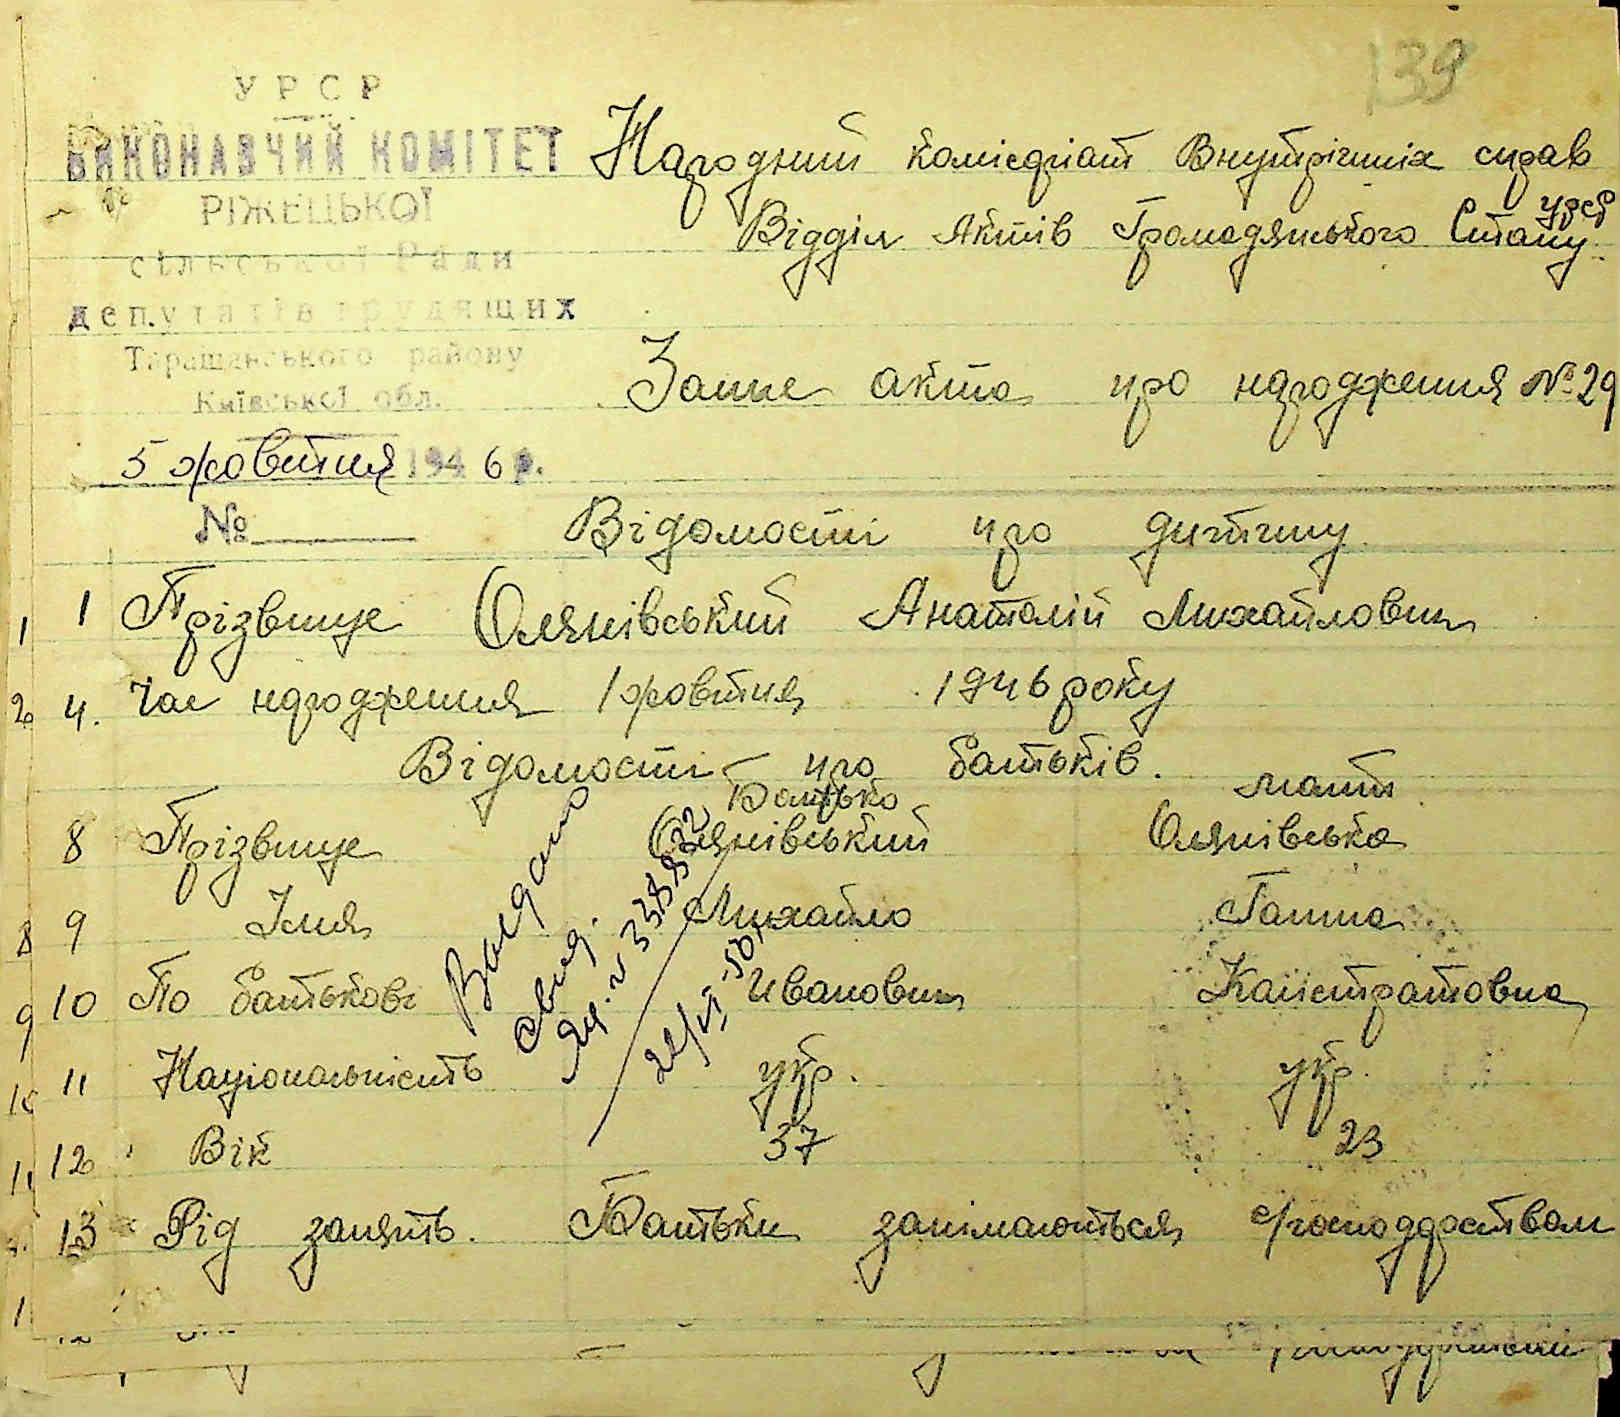 139
УРСР
ВИКОНАВЧИЙ КОМІТЕТ
РІЖЕЦЬКОЇ
сільської Ради
депутатів трудящих
Таращанського району
Київської обл.
5 жовтня 1946 р.
№
Народний комісаріат Внутрішніх справ
УРСР
Відділ Актів Громадянського Стану
Запис акта про народження № 29
Відомості про дитину
1 1 Прізвище Олянівський Анатолій Михайлович
2 4. Час народження 1 жовтня 1946 року
Відомості про батьків.
Батько мати
8 Прізвище Олянівський Олянівська
8 9 Імя Михайло Ганна
9 10 По батькові Иванович Каїстратовна
10 11 Національність укр. укр.
11 12 Вік 37 23
13 Рід занять. Батьки занімаються с/господарством
1
Видано
свид.